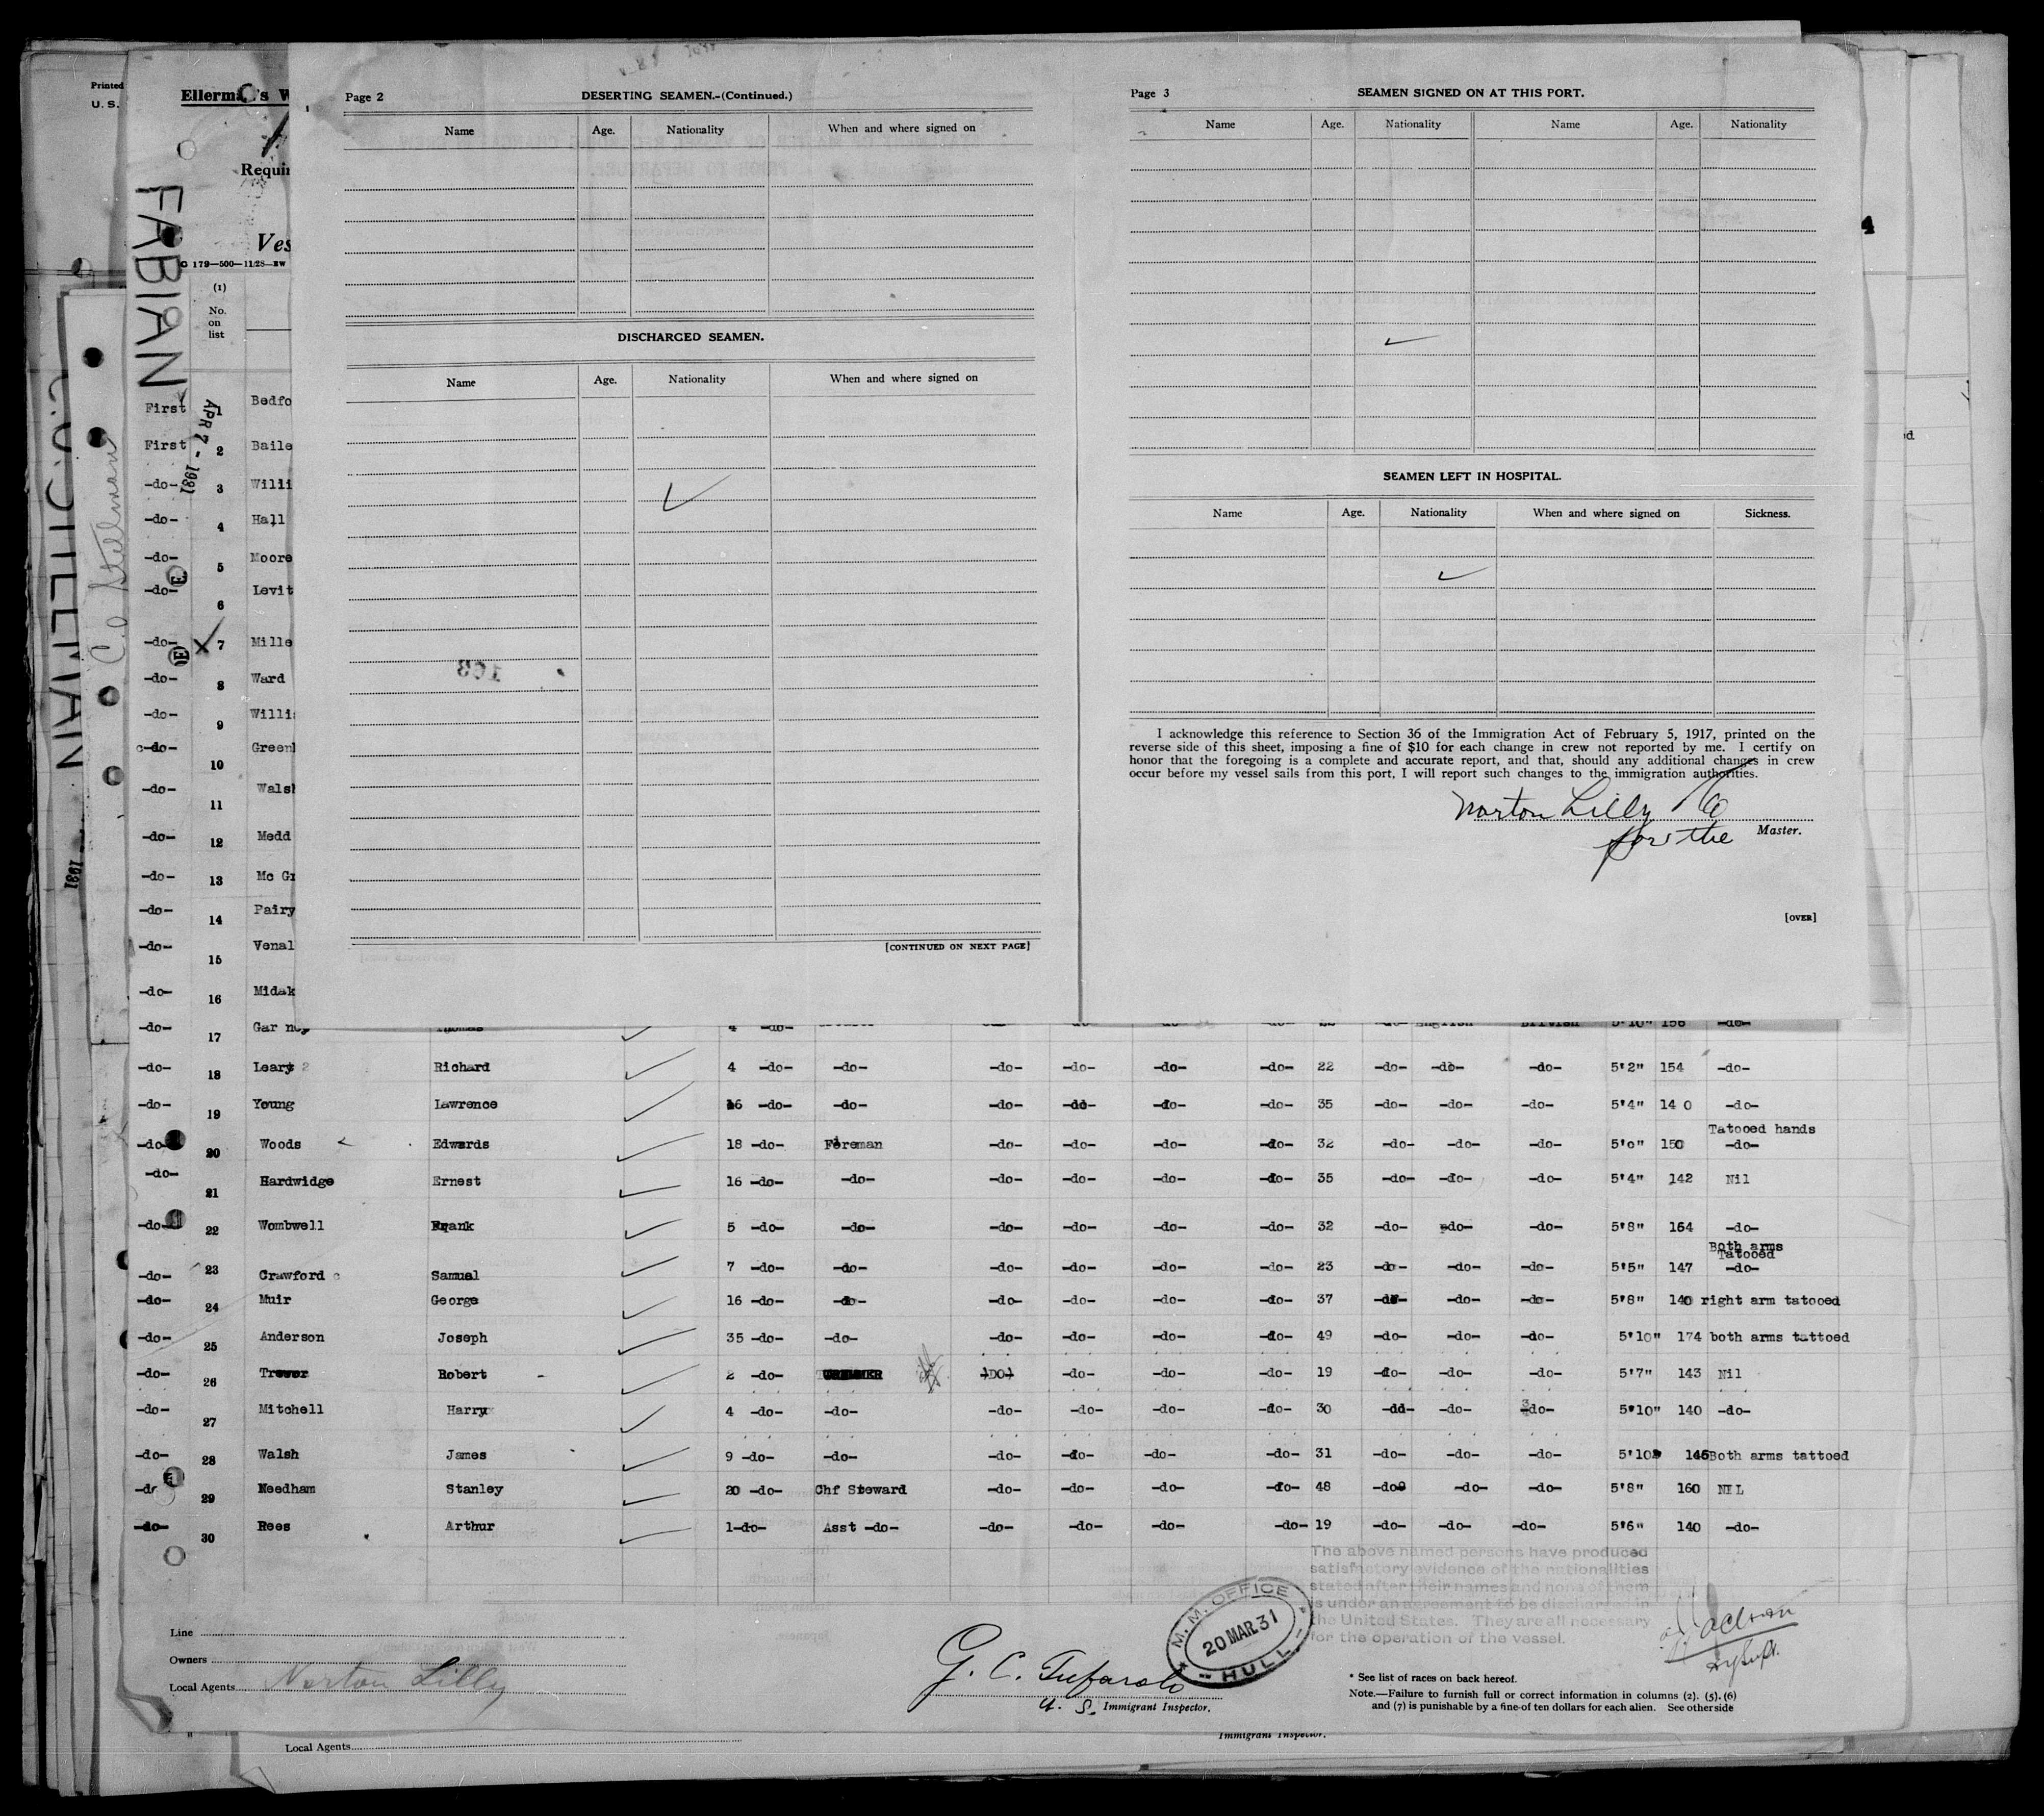 Printed
U. S.
Ellerman's W
Requir
Ves
C 179—500—11/28—RW
(1)
No.
on
list
FABIAN
APR 7 - 1931
C.O. STILLMAN
C.O Stillman
1931
4
Page 2
DESERTING SEAMEN.-(Continued.)
Name Age. Nationality When and where signed on
DISCHARGED SEAMEN.
Name Age. Nationality When and where signed on
103
[CONTINUED ON NEXT PAGE]
Page 3
SEAMEN SIGNED ON AT THIS PORT.
Name Age. Nationality Name Age. Nationality
SEAMEN LEFT IN HOSPITAL.
Name Age. Nationality When and where signed on Sickness.
I acknowledge this reference to Section 36 of the Immigration Act of February 5, 1917, printed on the
reverse side of this sheet, imposing a fine of $10 for each change in crew not reported by me. I certify on
honor that the foregoing is a complete and accurate report, and that, should any additional changes in crew
occur before my vessel sails from this port, I will report such changes to the immigration authorities.
Norton Lilly Co
for the Master.
[OVER]
First 1 Bedfo
First 2 Baile
-do- 3 Willi
-do- 4 Hall
-do- 5 Moore
-do- E 6 Levit
-do- E 7 Mille
-do- 8 Ward
-do- 9 Willi
-do- 10 Green
-do- 11 Wals
-do- 12 Medd
-do- 13 Mc Gr
-do- 14 Pairy
-do- 15 Venal
-do- 16 Midak
-do- 17 Gar ney Thomas 4 -do- -do- -do- 22 -do- English British 5'10" 156 -do-
-do- 18 Leary Richard 4 -do- -do- -do- -do- -do- -do- 22 -do- -do- -do- 5'2" 154 -do-
-do- 19 Young Lawrence 16 -do- -do- -do- -do- -do- -do- 35 -do- -do- -do- 5'4" 14 0 -do-
Tatooed hands
-do- 20 Woods Edwards 18 -do- Fireman -do- -do- -do- -do- 32 -do- -do- -do- 5'0" 150 -do-
-do- 21 Hardwidge Ernest 16 -do- -do- -do- -do- -do- -do- 35 -do- -do- -do- 5'4" 142 Nil
-do- 22 Wombwell Frank 5 -do- -do- -do- -do- -do- -do- 32 -do- -do- -do- 5'8" 164 -do-
Both arms
Tatooed
-do- 23 Crawford Samual 7 -do- -do- -do- -do- -do- -do- 23 -do- -do- -do- 5'5" 147 -do-
-do- 24 Muir George 16 -do- -do- -do- -do- -do- -do- 37 -do- -do- -do- 5'8" 140 right arm tatooed
-do- 25 Anderson Joseph 35 -do- -do- -do- -do- -do- -do- 49 -do- -do- -do- 5'10" 174 both arms tattoed
-do- 26 Trewer Robert 2 -do- TRIMMER -DO- -do- -do- -do- 19 -do- -do- -do- 5'7" 143 Nil
-do- 27 Mitchell Harry 4 -do- -do- -do- -do- -do- -do- 30 -do- -do- -do- 5'10" 140 -do-
-do- 28 Walsh James 9 -do- -do- -do- -do- -do- -do- 31 -do- -do- -do- 5'10" 145 Both arms tattoed
-do- 29 Needham Stanley 20 -do- Chf Steward -do- -do- -do- -do- 48 -do- -do- -do- 5'8" 160 NIL
-do- 30 Rees Arthur 1-do- Asst -do- -do- -do- -do- -do- 19 -do- -do- -do- 5'6" 140 -do-
The above named persons have produced
satisfactory evidence of the nationalities
stated after their names and none of them
is under an agreement to be discharged in
the United States. They are all necessary
for the operation of the vessel.
M. M. OFFICE
20 MAR.31
HULL
Line
Owners
Local Agents Norton Lilly
G. C. Tufarolo
U. S. Immigrant Inspector.
* See list of races on back hereof.
Note.—Failure to furnish full or correct information in columns (2). (5). (6)
and (7) is punishable by a fine of ten dollars for each alien. See other side
Local Agents
Immigrant Inspector.